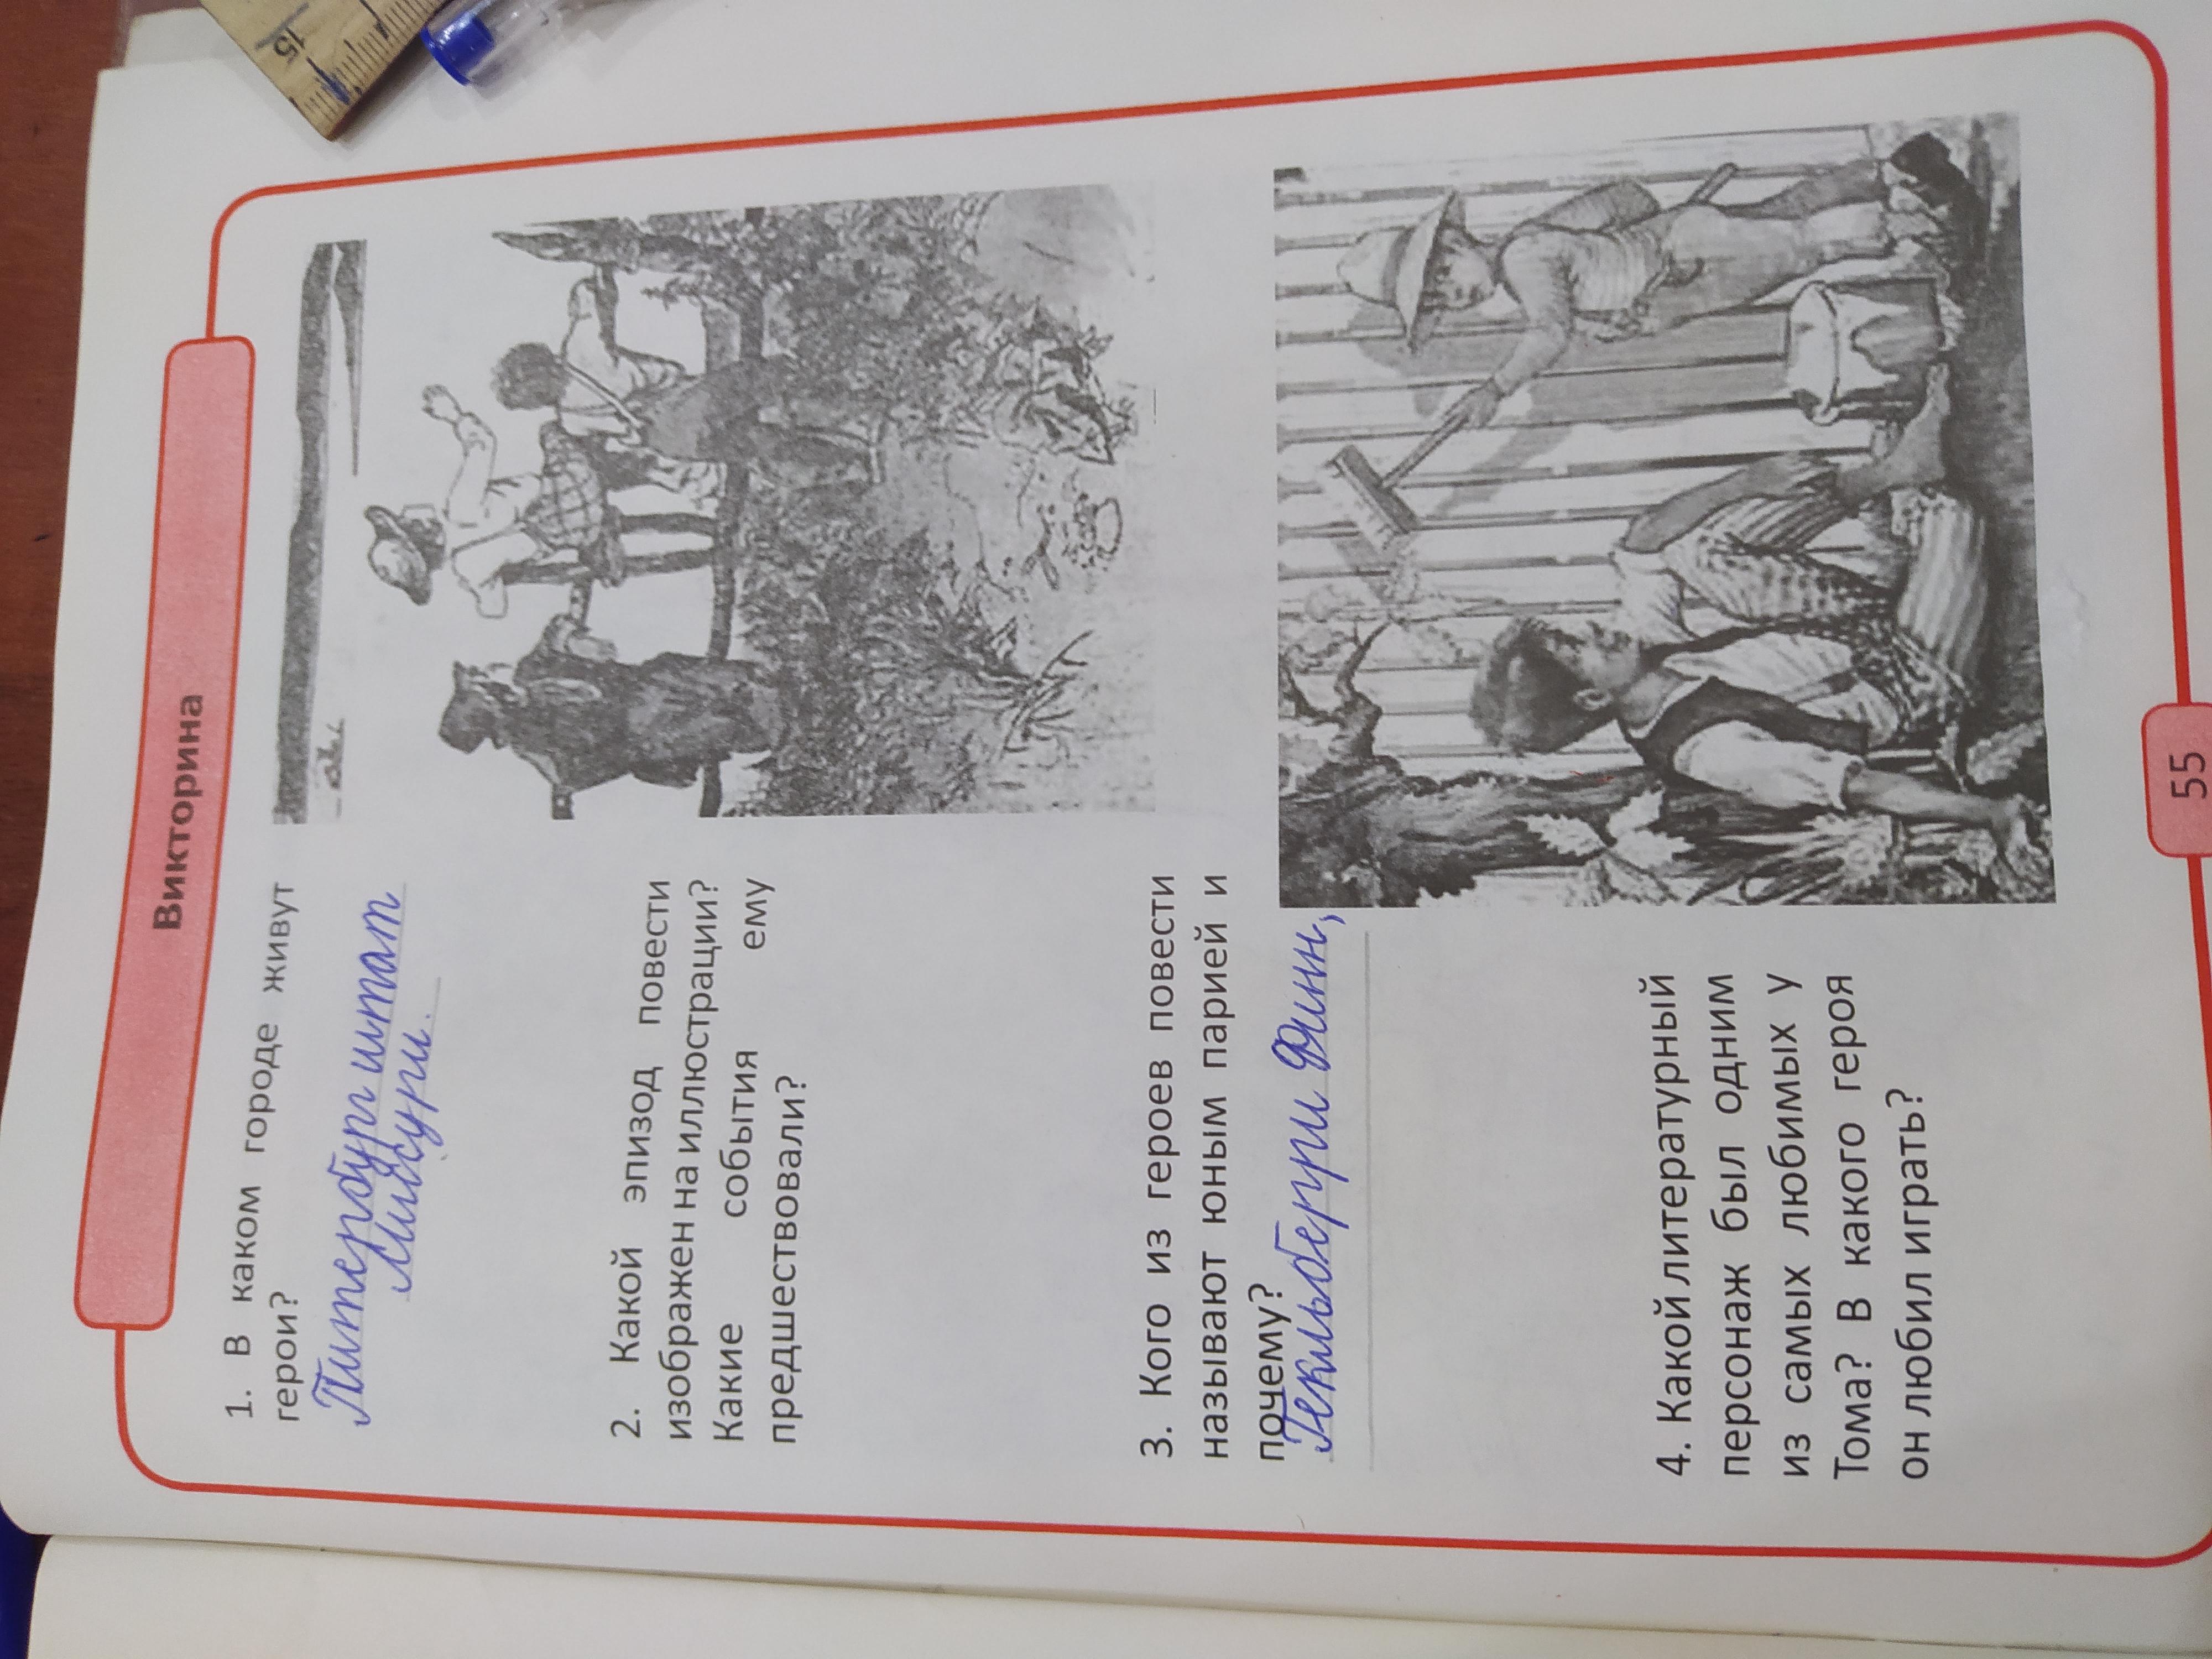 Викторина
1. В каком городе живут
герои?
Питербург штат
Миссури.
2. Какой эпизод повести
изображен на иллюстрации?
Какие события ему
предшествовали?
3. Кого из героев повести
называют юным парией и
почему?
Гекльберри Финн,
4. Какой литературный
персонаж был одним
из самых любимых у
Тома? В какого героя
он любил играть?
55
15